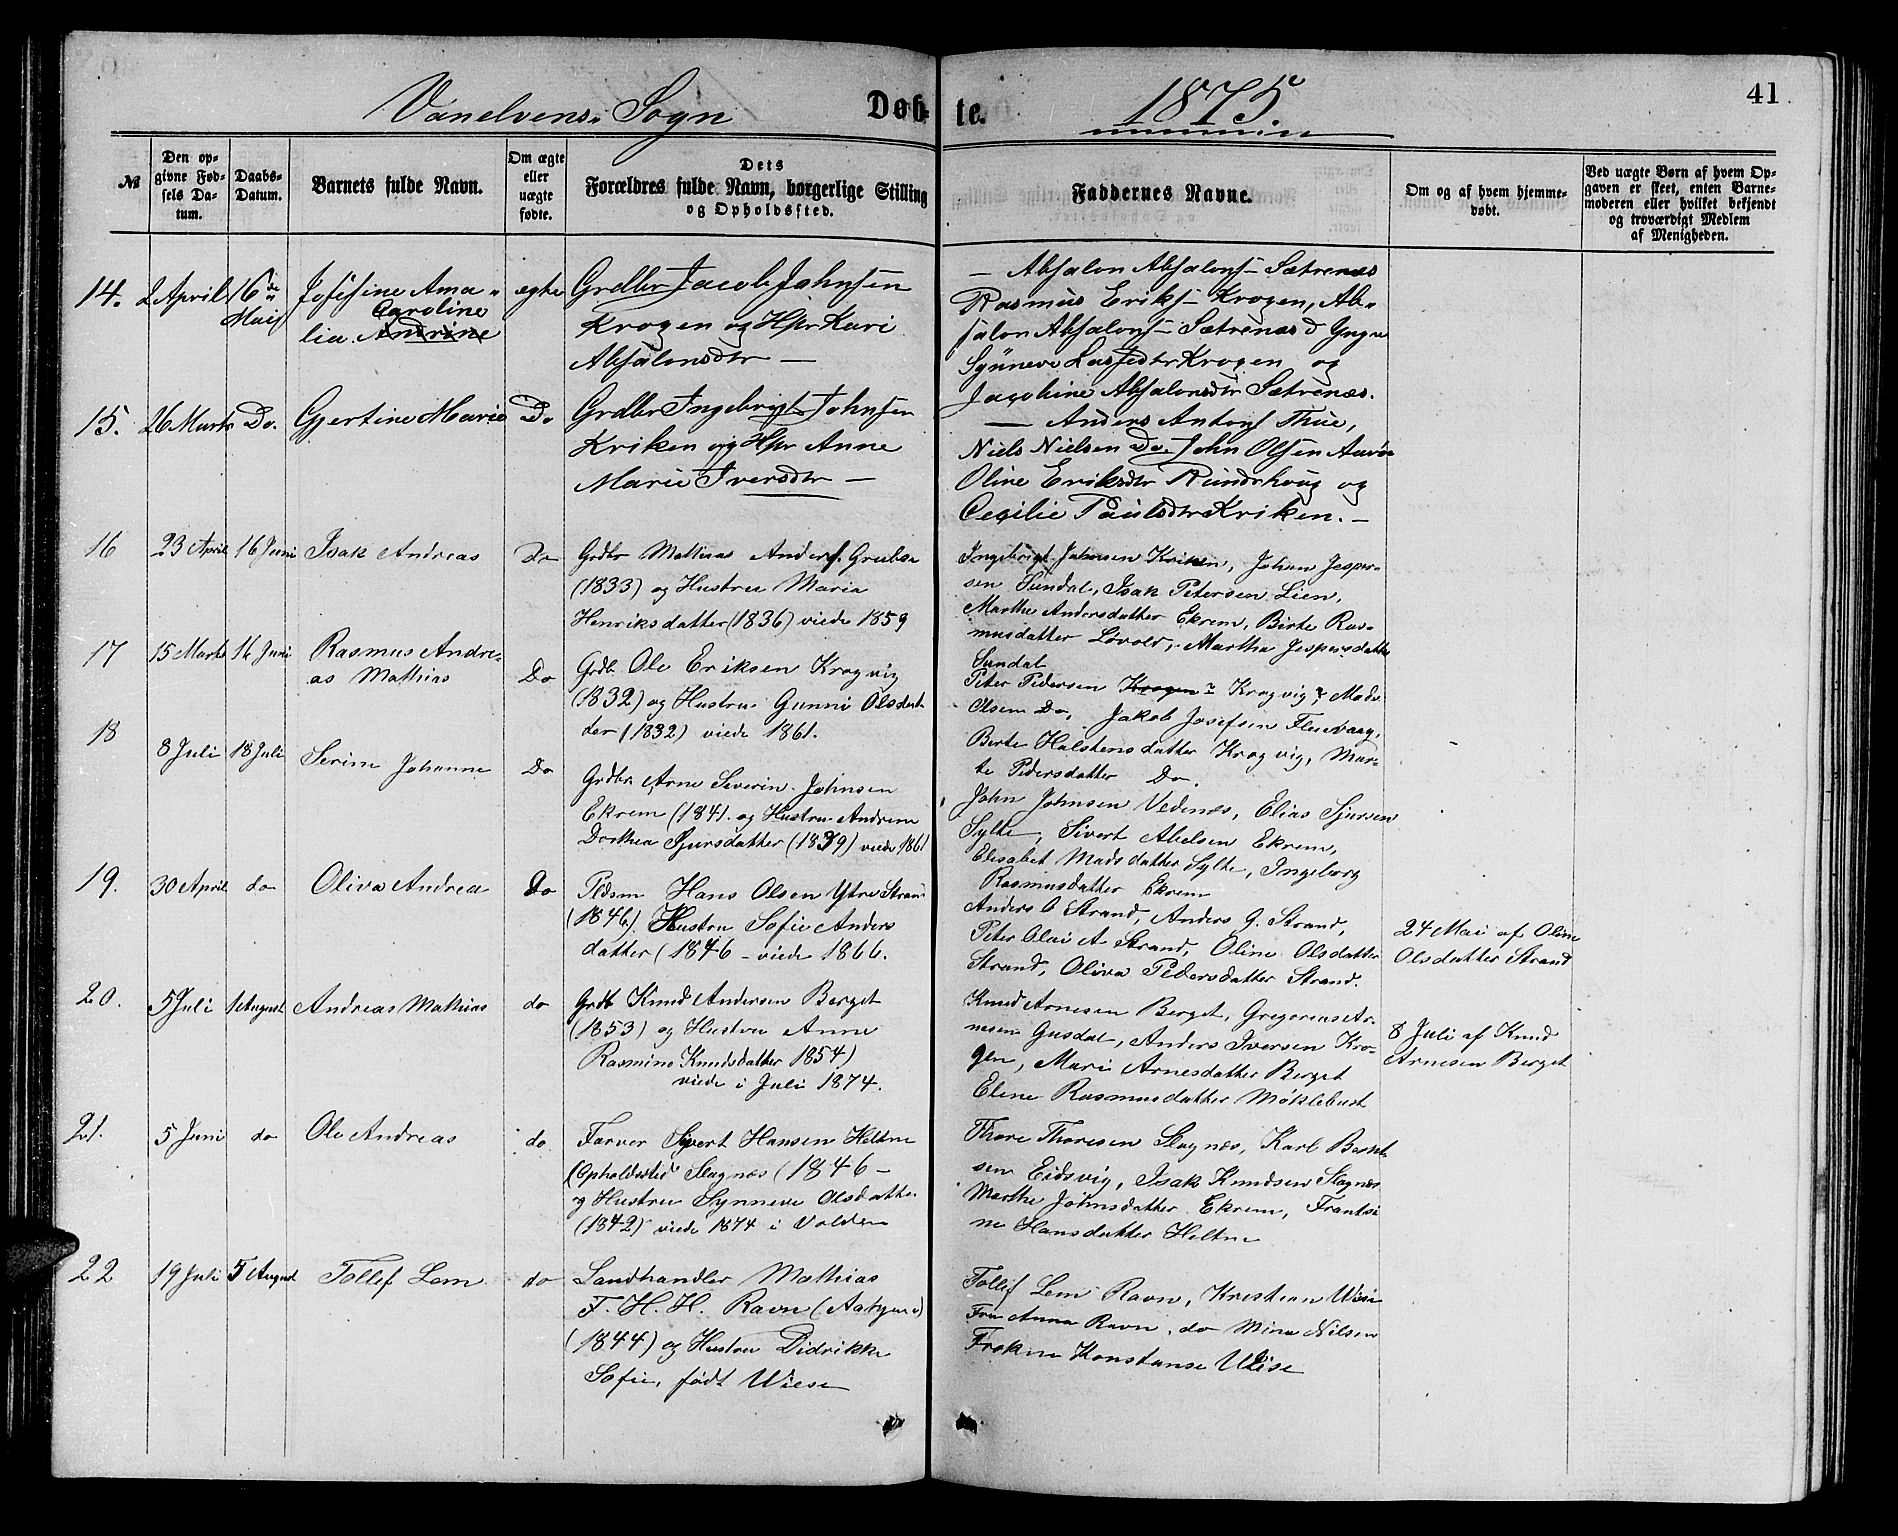 41
Vanelvens Sogn Døbte. 1875.
№
Den opgivne Fødsels Datum.
Daabs-Datum.
Barnets fulde Navn.
Om ægte eller uægte fødte.
Dets Forældres fulde Navn, borgerlige Stilling og Opholdssted.
Faddernes Navne.
Om og af hvem hjemmedøbt.
Ved uægte Børn af hvem Opgaven er skeet, enten Barnemoderen eller hvilket bekjendt og troværdigt Medlem af Menigheden.
14. 2 April 16de Mai Josefine Ama-
Caroline
lia Andrine
ægte
Grdbr Jacob Johnsen
Krogen og Hstr Kari
Absalonsdtr —
— Absalon Absalons. Sætrenæs
Rasmus Eriks. Krogen, Ab-
salon Absalons. Sætrenæs
Synneve Lassedtr Krogen og
Jacobine Absalonsdtr Sætrenæs.
15. 26 Marts Do. Gjertine Marie Do
Grdbr Ingebrigt Johnsen
Kriken og Hstr Anne
Marie Iversdtr —
— Anders Antons. Thue,
Niels Nielsen Do. John Olsen
Oline Eriksdtr Rundehoug og
Cecilie Paulsdtr Kriken. —
16 23 April 16 Juni Isak Andreas Do
Grdbr Mathias Anders.
(1833) og Hustru Maria
Henriksdatter (1836) viede 1859
Ingebrigt Johnsen Kriken, Johan Jesper-
sen Sundal, Isak Petersen Lien,
Marthe Andersdatter Ekrem, Birte Ras-
musdatter Løvold, Martha Jespersdatter
Sundal
17 15 Marts 16 Juni Rasmus Andre-
as Mathias
Do
Grdb. Ole Eriksen Krogvig
(1832) og Hustru Gunni Olsdat-
der (1832) viede 1861.
Peter Pedersen Krogen Krogvig, Mads
Olsen Do, Jakob Josefsen
Berte Halstensdatter Krogvig, Mar-
te Pedersdatter Do
18 8 Juli 18 Juli Serine Johanne Do
Grdbr. Arne Severin Johnsen
Ekrem (1841. og Hustru Andrine
Dorthea Sjursdatter (1839) viede 1861
John Johnsen Vedenæs, Elias Sjursen
Sylte, Sivert Abelsen Ekrem,
Elisabet Madsdatter Sylte, Ingeborg
Rasmusdatter Ekrem
19. 30 April do Oliva Andrea Do
Pldsm Hans Olsen Ytre Strand
(1846) Hustru Sofie Anders
datter (1846 - viede 1866.
Anders O Strand, Anders G. Strand,
Peter Olai A Strand, Oline Olsdatter
Strand, Oliva Pedersdatter Strand.
24 Mai af Oline
Olsdatter Strand
20. 5 Juli 1 August Andreas Mathias do
Grdb Knud Andersen Berget
(1853) og Hustru Anne
Rasmine Knudsdatter 1854)
viede i Juli 1874.
Knud Arnesen Berget, Gregorius Ar-
nesen Gusdal, Anders Iversen Kro-
gen, Mari Arnesdatter Berget
Elene Rasmusdatter Møklebust
8 Juli af Knud
Arnesen Berget
21. 5 Juni do Ole Andreas do
Farver Syvert Hansen Heltne
(Opholdssted Slagnæs (1846 -
og Hustru Synneve Olsdatter
(1842) viede 1874 i Volden
Thore Thoresen Slagnæs, Karl Bernt-
sen Eidsvig, Isak Knudsen Slagnæs
Marthe Johnsdatter Ekrem, Frantsi
ne Hansdatter Heltne
22 19 Juli 5 August Tollef Lem do
Landhandler Mathias
F. H. H. Ravn
(1844) og Hustru Didrikke
Sofie, født Wiese
Tollif Lem Ravn, Kristian Wiese
Fru Anna Ravn, do Mina Nilsen
Frøken Konstanse Wiese